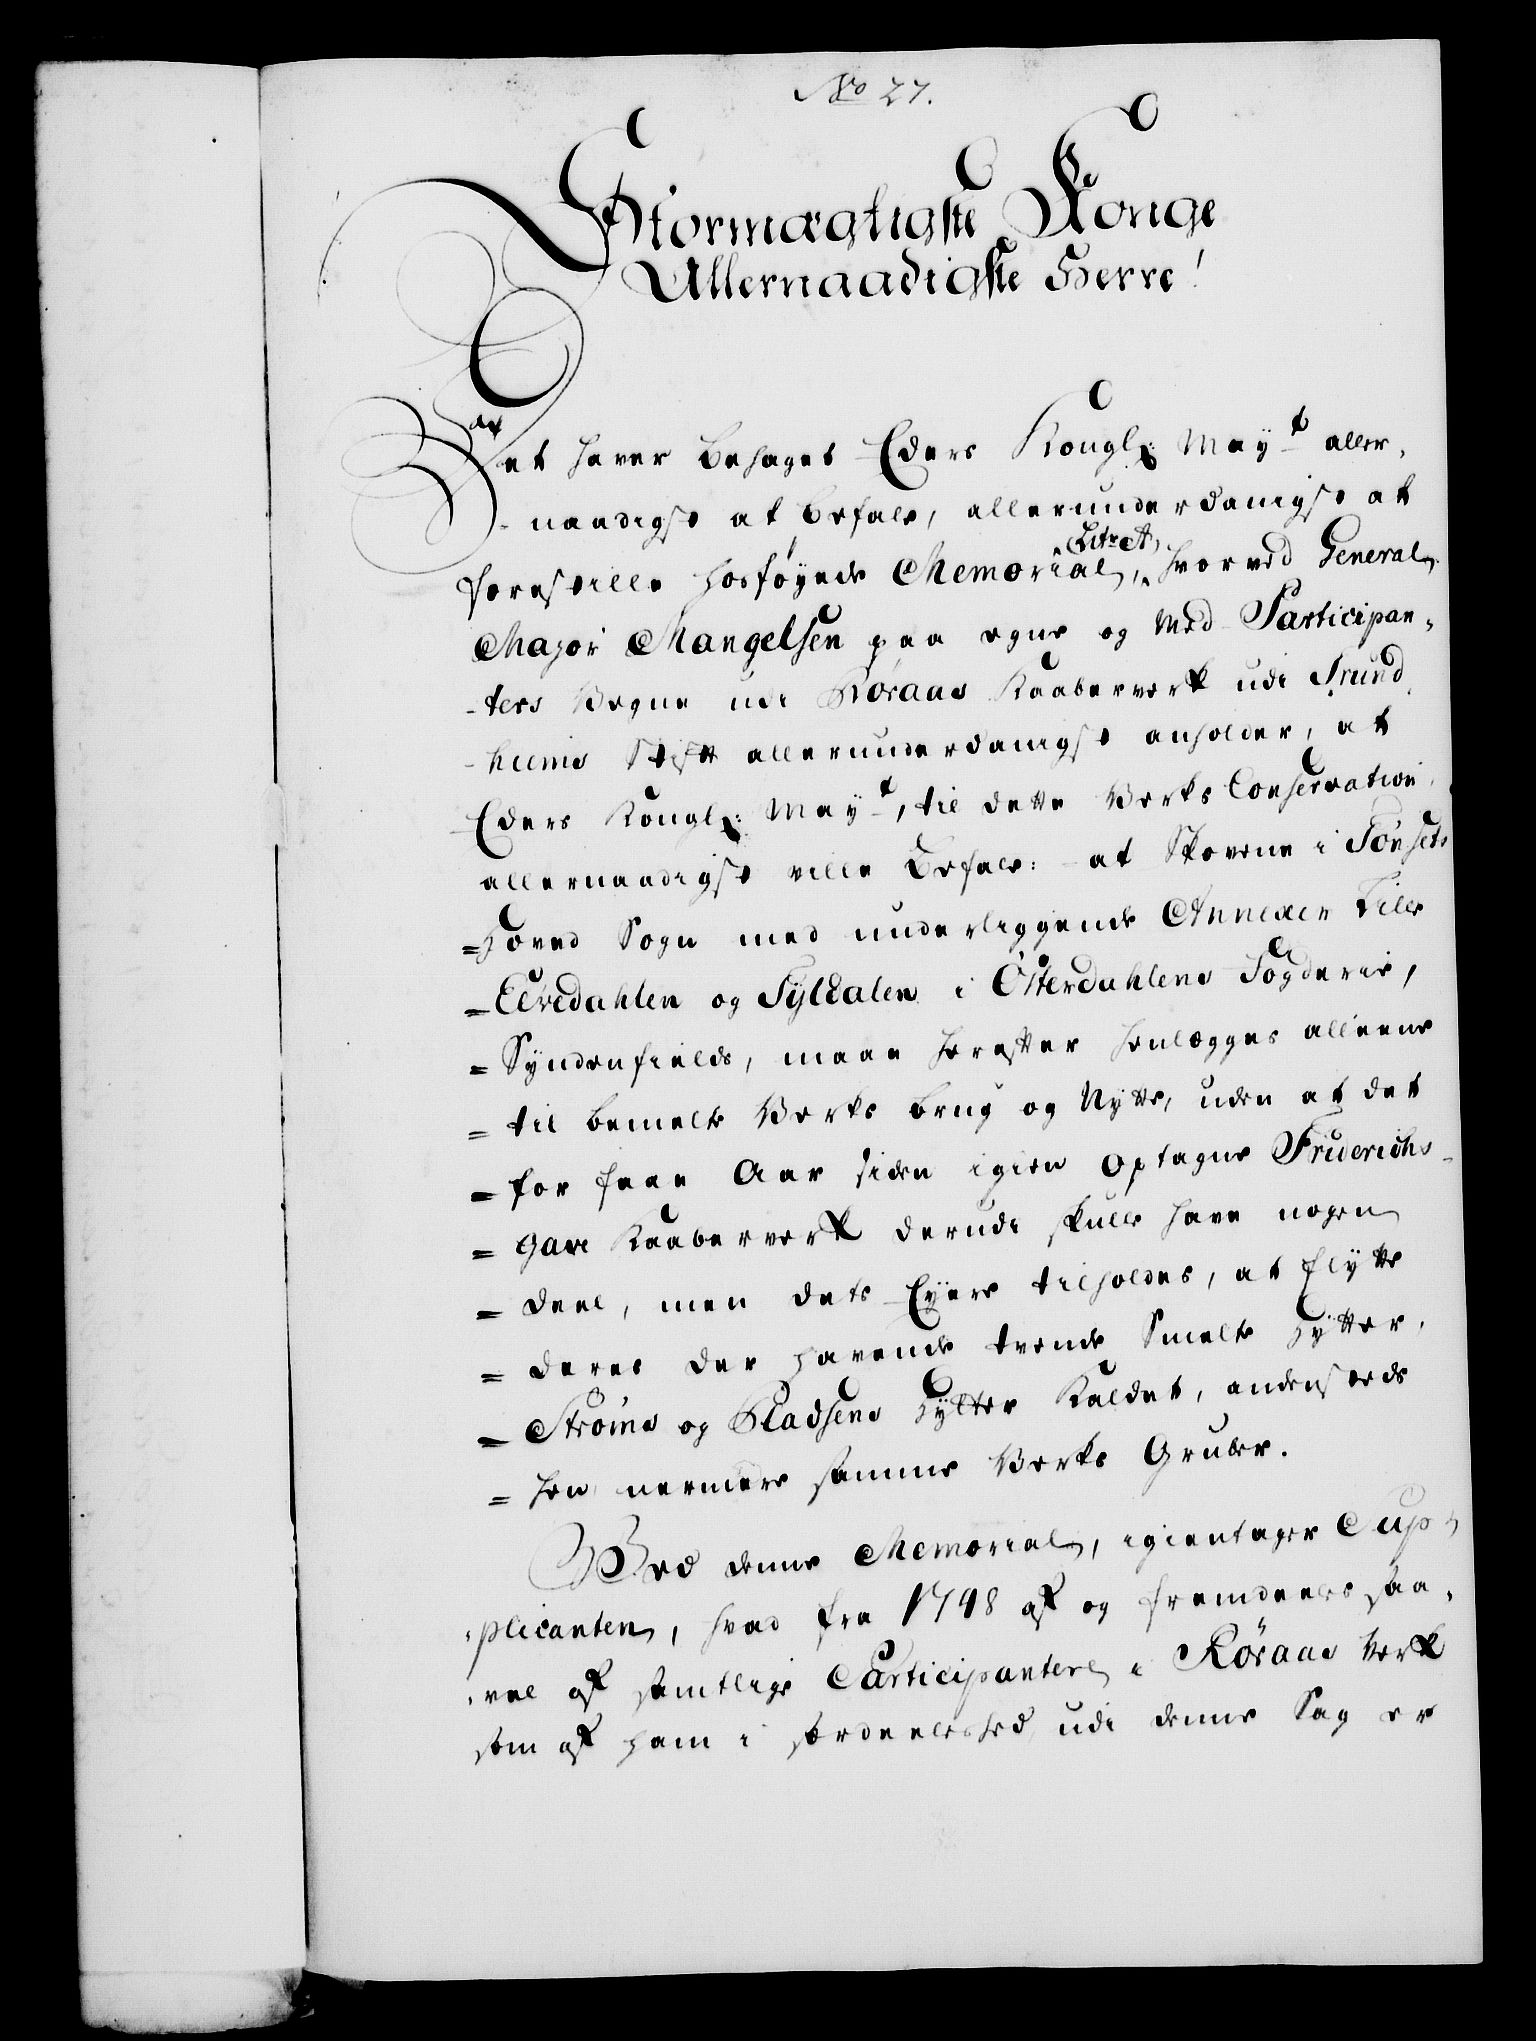 No 27.
Stormægtigste Konge
Allernaadigste Herre!
Det haver behaget Eders Kongl: May:t aller-
-naadigst at befale, allerunderdanigst at
forestille hosføyede Memorial, (Litr A) hvorved General
Major Mangelsen paa egne og Med Participan-
-ters Vegne udi Røraas Kaaberverk udi Trund-
-hiems Stift allerunderdanigst anholder, at
Eders Kongl: May:t, til dette Verks Conservation,
allernaadigst ville befale: at Skovene i Tønsets
= Hoved Sogn med underliggende Annexer Lille
= Elvedahlen og Tyldalen i Østerdahlens Fogderie,
= Syndenfields, maae herefter henlægges alleene
= til bemelte Verks brug og Nytte, uden at det
= for faae Aar siden igien optagne Friderichs-
= Gave Kaaberverk derudi skulle have nogen
= deel, men dets Eyere tilholdes, at flytte
= deres der havende tvende Smelte Hytter,
= Strøms og Kladsens Hytter Kaldet, andensteds
= hen nermere samme Verks Gruber.
Ved denne Memorial, igientager Sup-
-plicanten, hvad fra 1748 af og fremdeeles saa-
-vel af samtlige Participantere i Røraas Verk
som af ham i særdeeleshed udi denne Sag er